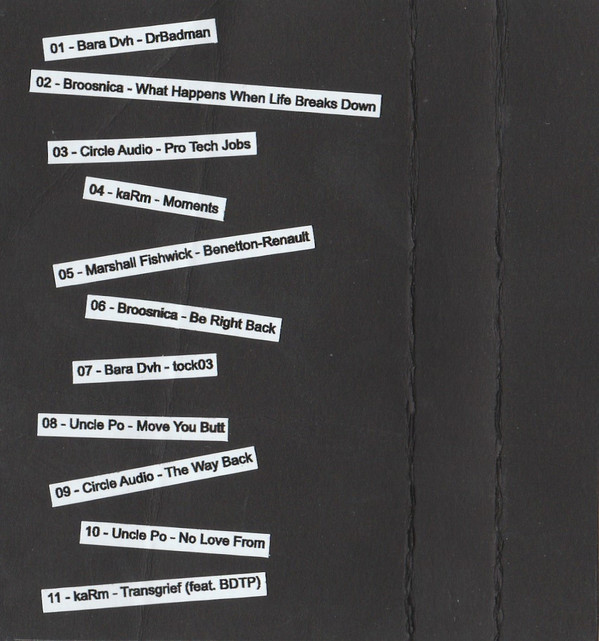 01 - Bara Dvh - DrBadman
02 - Broosnica - What Happens When Life Breaks Down
03 - Circle Audio - Pro Tech Jobs
04 - kaRm - Moments
05 - Marshall Fishwick - Benetton-Renault
06 - Broosnica - Be Right Back
07 - Bara Dvh - tock03
08 - Uncle Po - Move You Butt
09 - Circle Audio - The Way Back
10 - Uncle Po - No Love From
11 - kaRm - Transgrief (feat. BDTP)